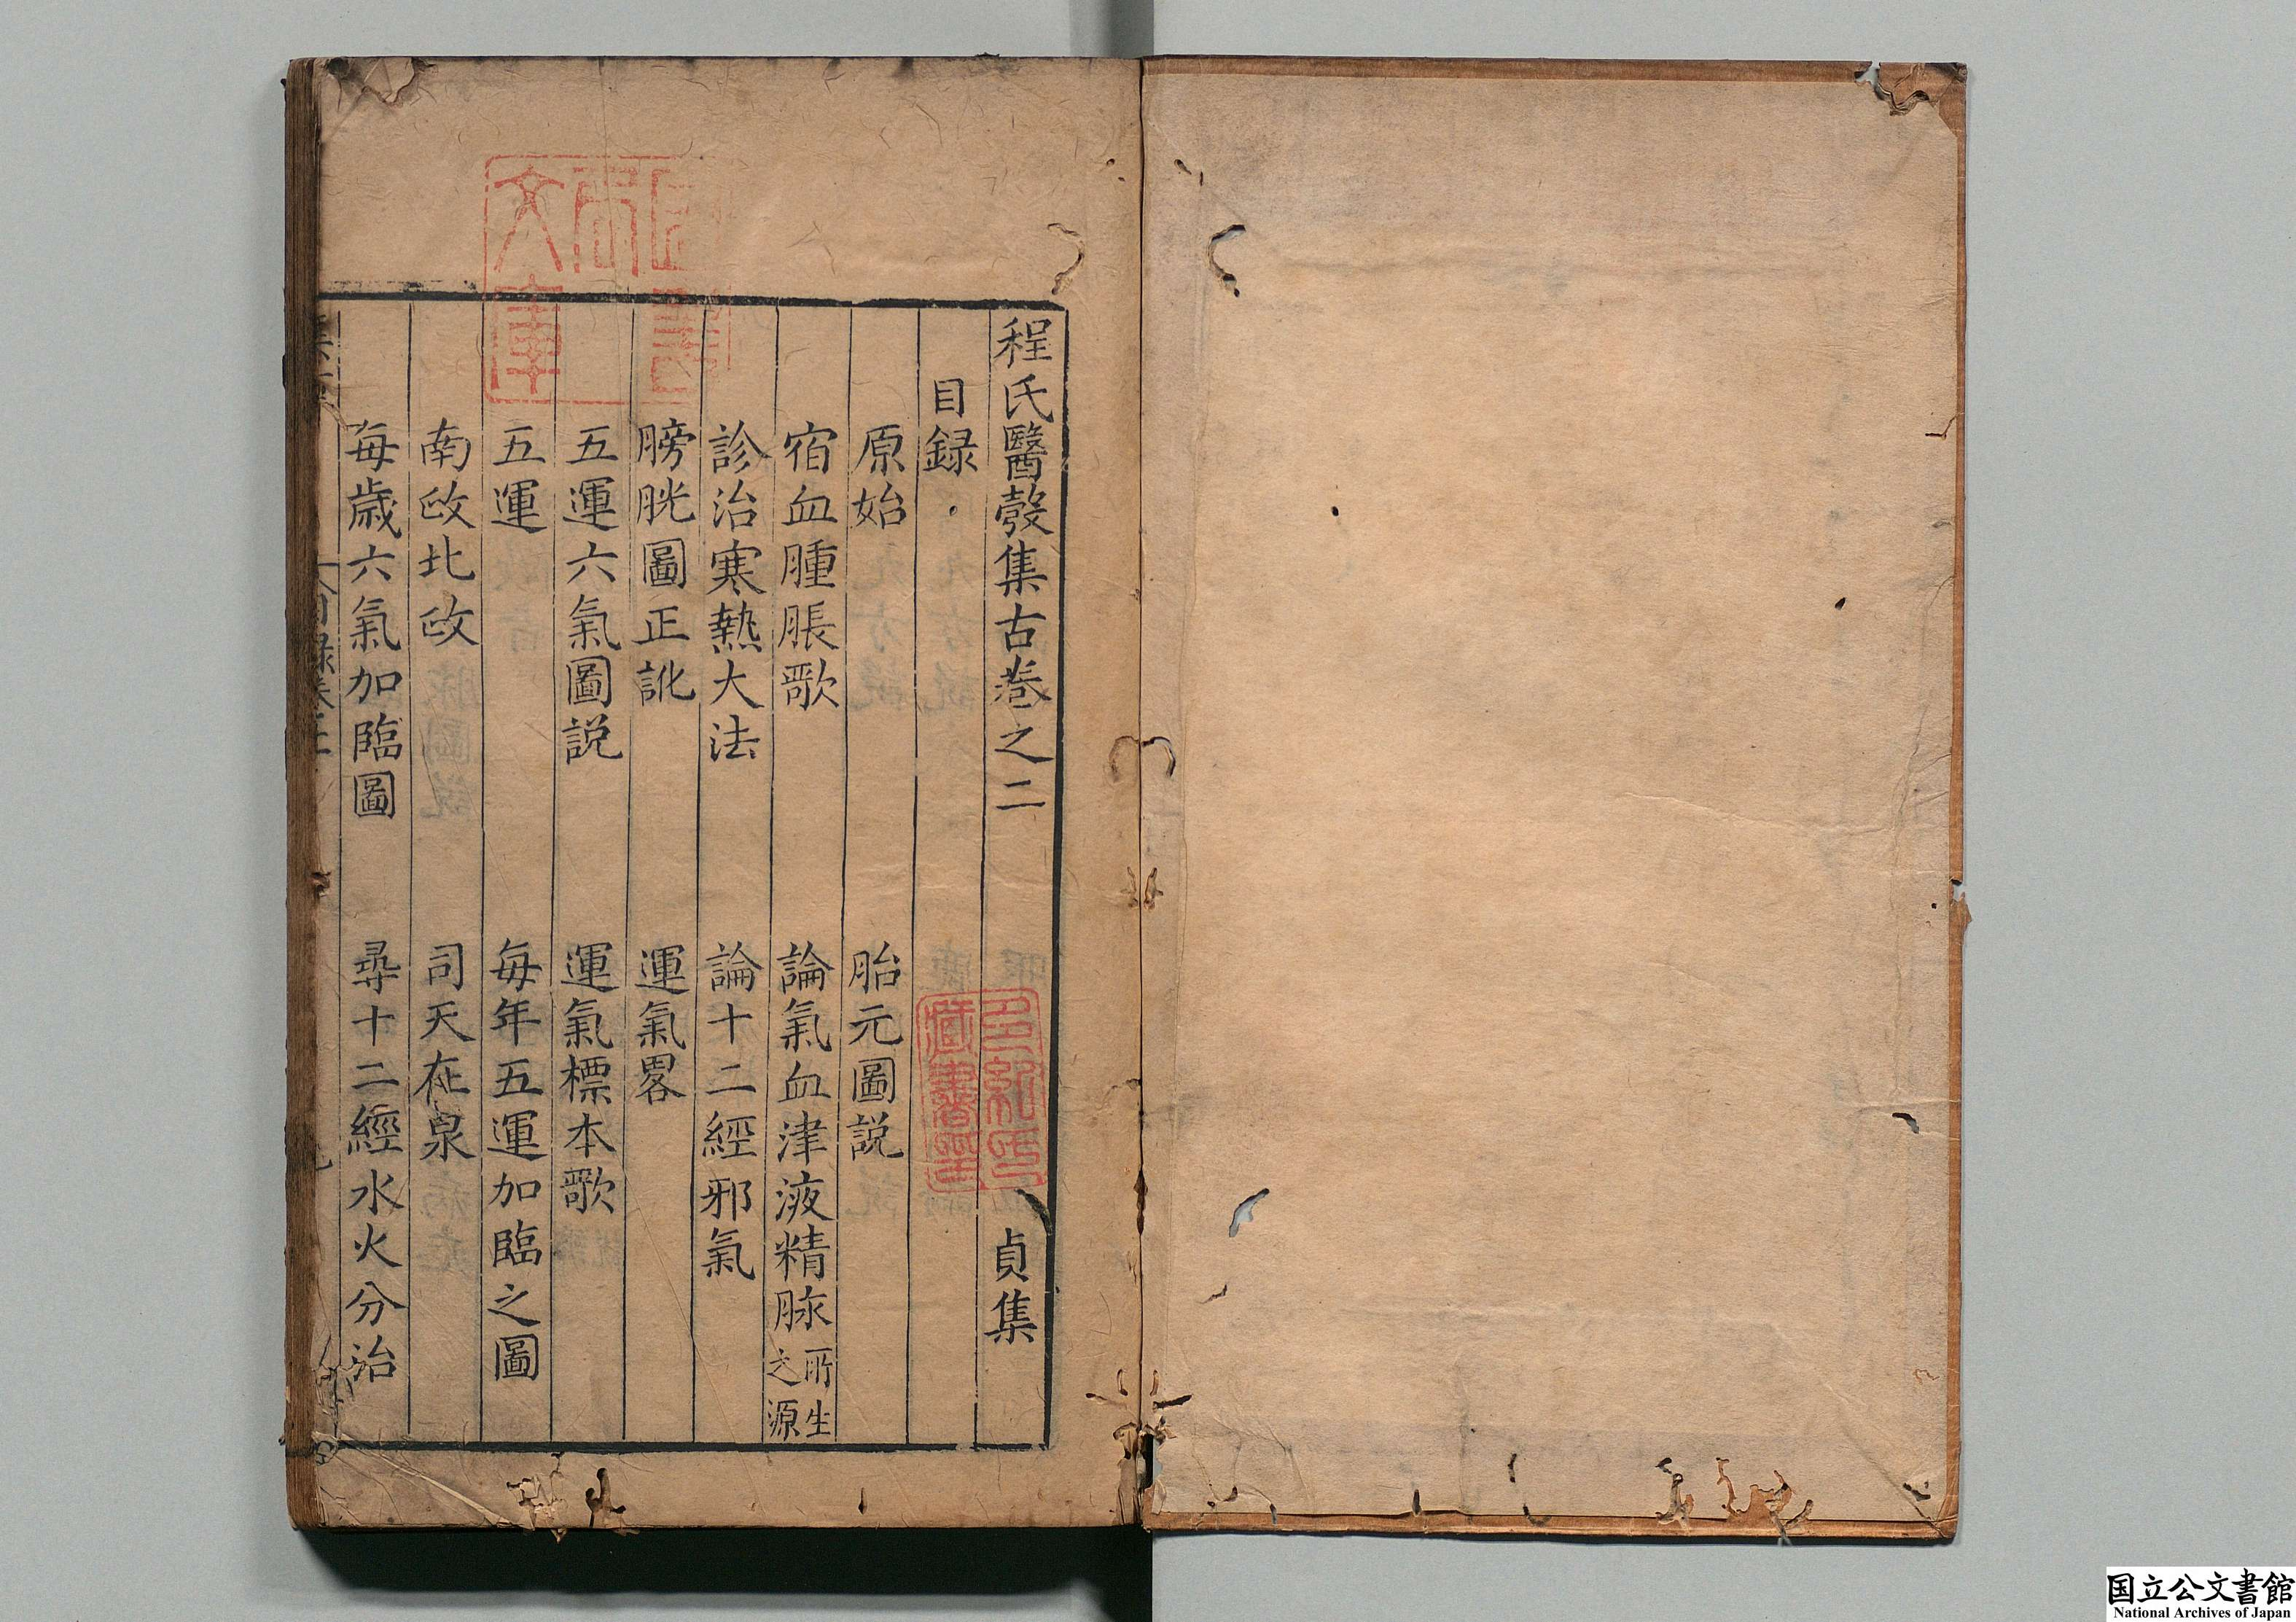 程氏醫彀集古卷之二　貞集
目録
原始　胎元圖説
宿血腫脹歌　論氣血津液精脉所生之源
診治寒熱大法　論十二經邪氣
膀胱圖正訛　運氣畧
五運六氣圖説　運氣標本歌
五運　每年五運加臨之圖
南政北政　司天在泉
每歲六氣加臨圖　尋十二經水火分治
多紀氏藏書印
文庫
国立公文書館
National Archives of Japan